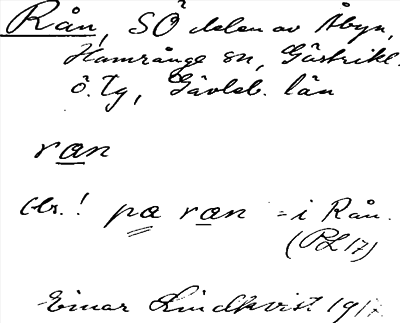 Rån, SÖ delen av Åbyn,
Hamrånge sn, Gästrikl.
ö. Tg, Gävleb. län
ran
Obs.! pa ran = i Rån.
(RL 17)
Einar Lindkvist 1917.